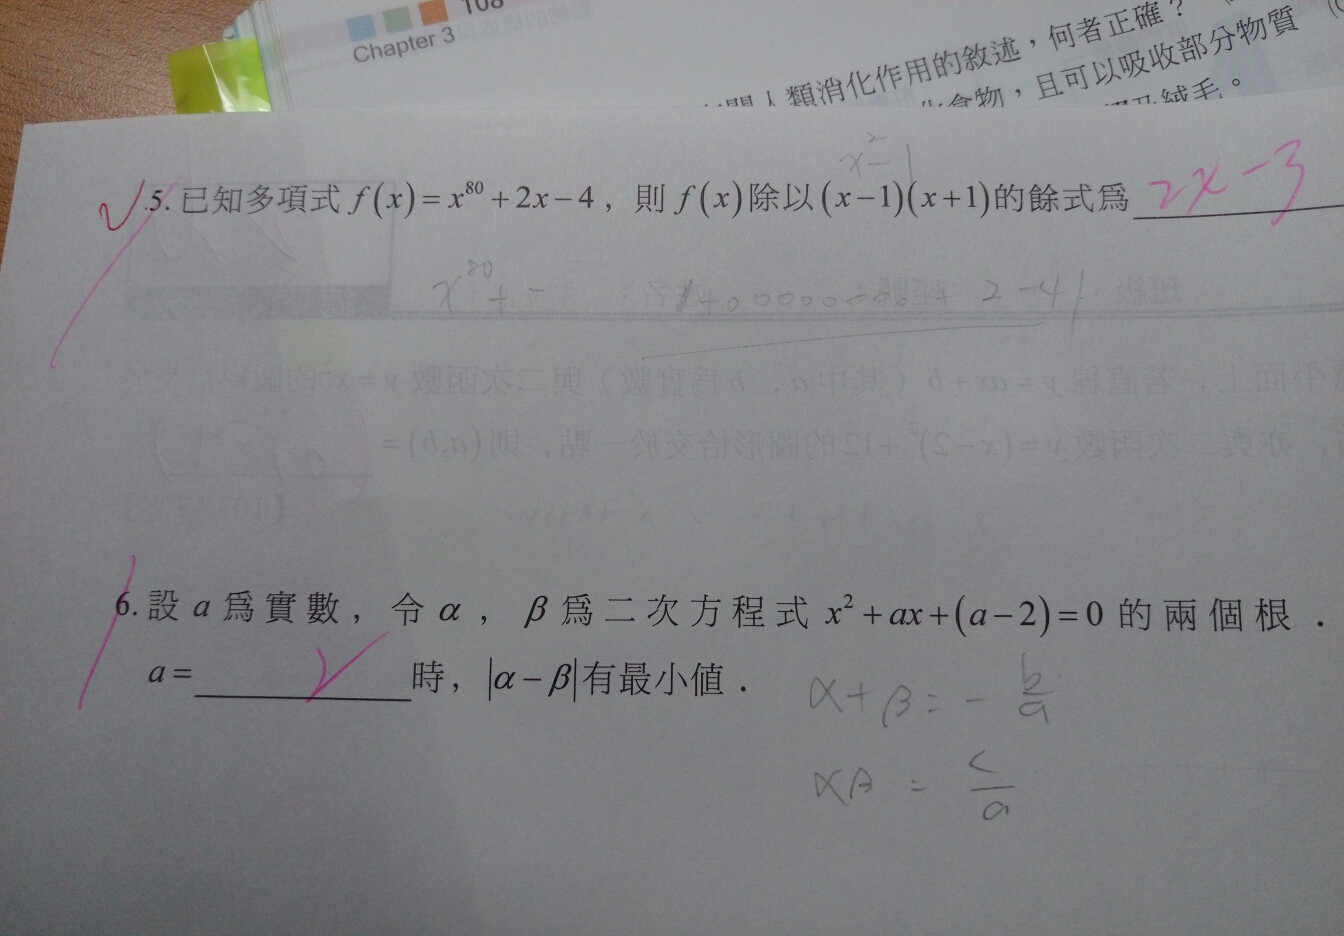 108
Chapter 3
人類消化作用的敘述，何者正確？
食物，且可以吸收部分物質
絨毛。
x²-1
5. 已知多項式 f(x)=x⁸⁰+2x-4，則 f(x)除以(x-1)(x+1)的餘式爲 2x-3
x⁸⁰+-
2-4
6. 設 a 爲實數，令 α，β 爲二次方程式 x²+ax+(a-2)=0 的兩個根．
a= 2 時，|α-β|有最小值．
α+β=-b/a
αβ=c/a